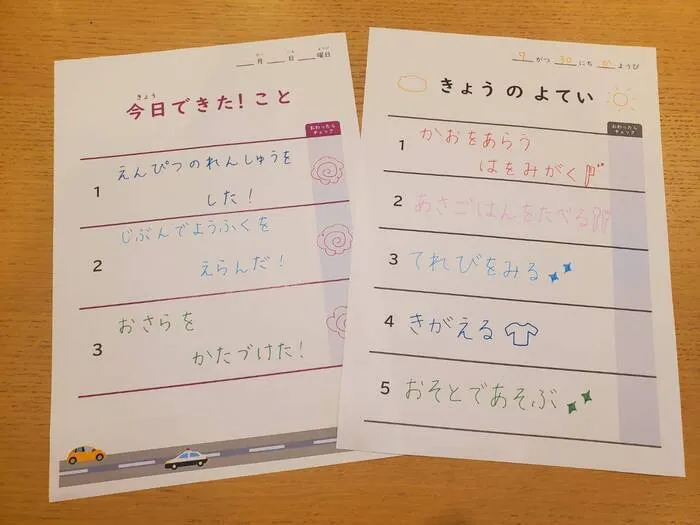 ___月___日___曜日
きょう
今日できた!こと
おわったら
チェック
1 えんぴつのれんしゅうを
した!
2 じぶんでようふくを
えらんだ!
3 おさらを
かたづけた!
9がつ30にちかようび
きょうのよてい
おわったら
チェック
1 かおをあらう
はをみがく
2 あさごはんをたべる
3 てれびをみる
4 きがえる
5 おそとであそぶ